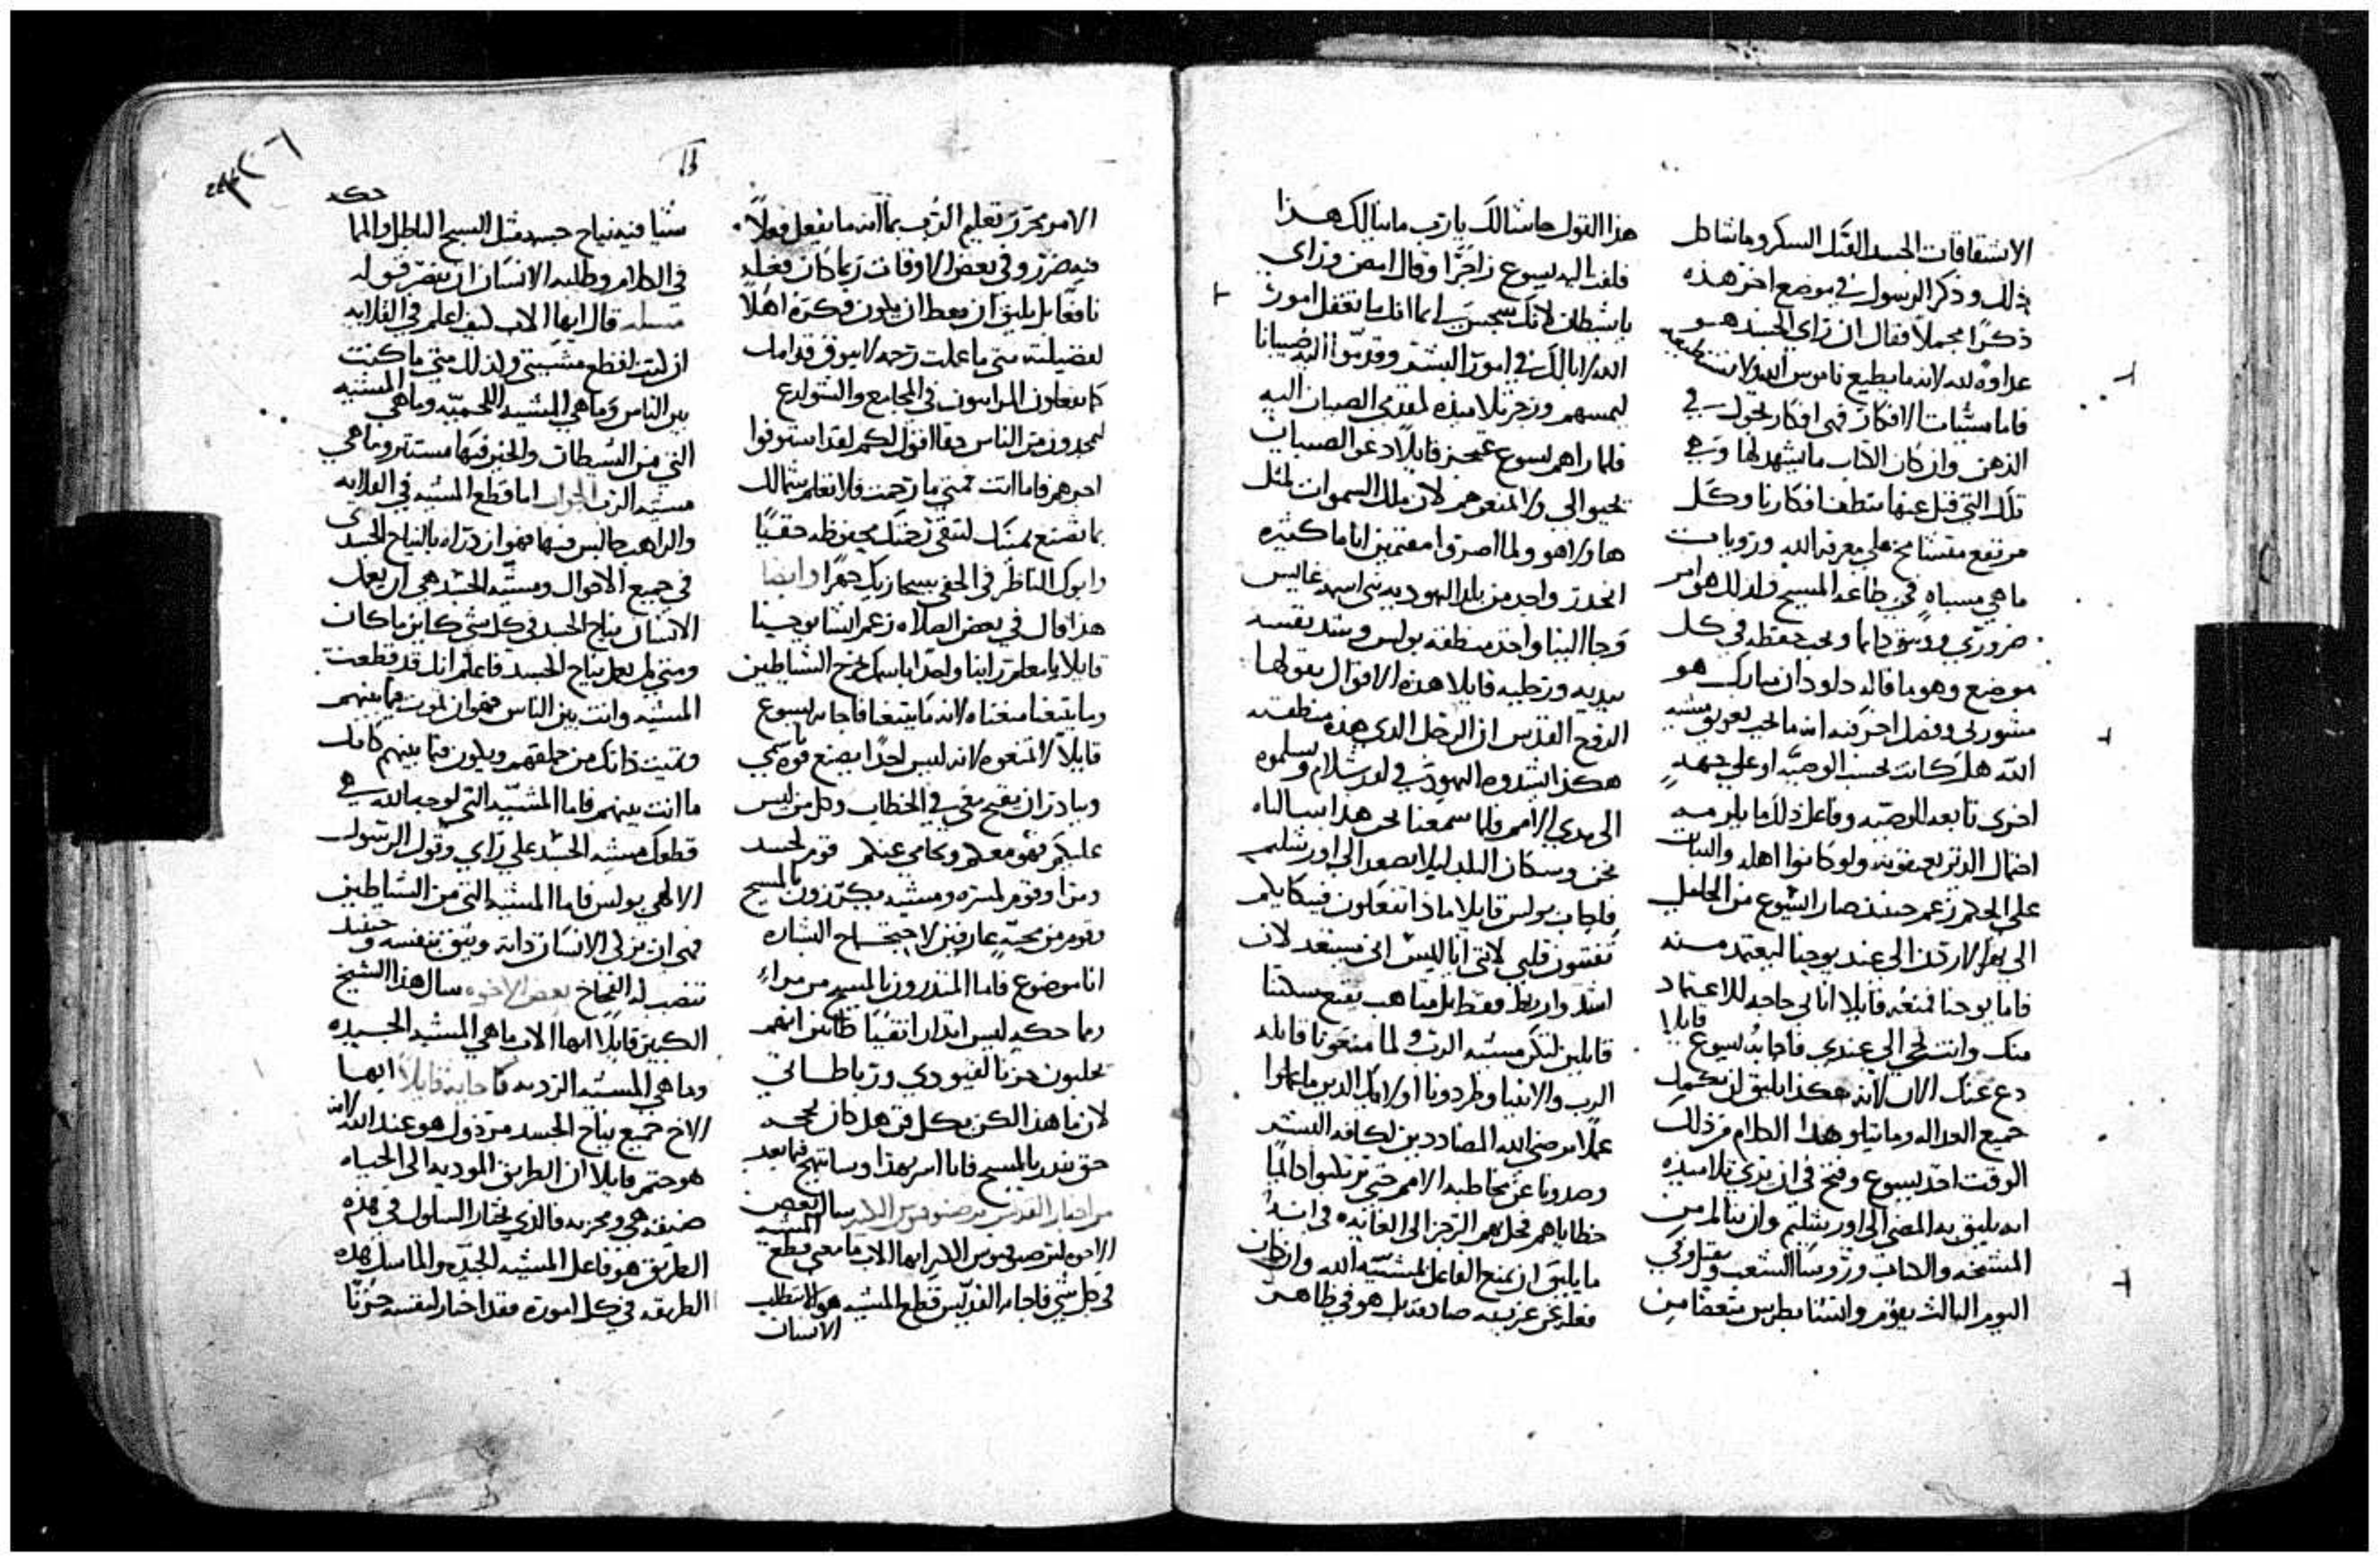 الاشتقاقات الحسد القتل السكر وما شاكل
ذلك وذكر الرسول في موضع اخر هذه
ذكرًا مجملاً فقال ان راي الجسد هو
عداوة لله لانه ما يطيع ناموس الله ولا يستطيع
فاما مشيات الافكار فهي افكار تجول في
الذهن وان كان الكتاب ما يشهد لها وهي
تلك التي قيل عنها نتطف افكارنا وكل
مرتفع متشامخ علي معرفة الله وروبات
ما هي مسباه في طاعة المسيح ولذلك هو امر
ضروري ووثيق دايما ويجب حفظه في كل
موضع وهو ما قاله داود ان مبارك هو
مشورتي وفضل اخر فيه انه ما يجب تعويق مشيه
الله هل كانت بحسب الوصيه او علي جهة
اخري تابعه للوصيه وفاعل ذلك ما يلزمه
احتمال الذين يعيقونه ولو كانوا اهله والثبات
علي الحكم زعم حينئذ صار ايسوع من الجليل
الي نهر الاردن الي عند يوحنا ليعتمد منه
فاما يوحنا فمنعه قايلا انا لي حاجه للاعتماد
منك وانت تجي الي عندي فاجابه يسوع قايلا
دع عنك الان لانه هكذا يليق ان نكمل
جميع العداله وما يتلو هذا الكلام من ذلك
الوقت اخذ يسوع وفتح في ان يري تلاميذه
انه يليق به المضي الي اورشليم وان يتالم من
المشيخه والكتاب وروسا الشعب ويقتل وفي
اليوم الثالث يقوم وانثنا بطرس متعضًا من
هذا القول حاشا لك يا رب ما ينالك هذا
فلفت اليه يسوع زاجرًا وقال امض وراي
يا شيطان لانك سجس لي اما انك ما تعقل امور
الله لا بالك في امور البشر وقدموا اليه صبيانا
ليمسهم وزجر تلاميذه لمقدمي الصبيان اليه
فلما راهم يسوع تمحز قايلاً دعو الصبيان
يجيو الي ولا تمنعوهم لان ملك السموات لمثل
هاولا هو ولما اصرنا مقتمين اياما كثيره
انحدر واحد من بلد اليهوديه نبي اسمه غابيس
وجا الينا واخذ منطقة بولس وشد نفسه
بيديه ورجليه قايلا هذه الاقوال يقولها
الروح القدس ان الرجل الذي هذه منطقته
هكذا يشدوه اليهود في اورشلام ويسلموه
الي يدي الامم فلما سمعنا نحن هذا سالناه
نحن وسكان البلد ليلا يصعد الي اورشليم
فاجاب بولس قايلا ماذا تفعلون فيبكايكم
تفتتون قلبي لانني انا ليس اني مستعد لان
اشد واربط فقط بل متاهب
قايلين لتكن مشيه الرب ولما منعونا قايله
الرب والانبيا وطردونا اولايك الذين ما عملوا
عملًا يرضي الله المضاددين لكافة البشر
وصدونا عن مخاطبه الامم حتي ترتكبوا دايمًا
خطاياهم فحل بهم الرجز الي الغايه في ابتدا
ما يليق ان يمنع الفاعل لمشية الله وان كان
فعله عن عزيمه صادقه بل هو في ظاهر
الامر محرر تعليم الرب بما انه ما يفعل فعلاً
فيه ضرر وفي بعض الاوقات ربما كان فعله
نافعًا بل يليق ان يعطا ان يكون فكره اهلا
لفضيلته متي ما عملت رحمه لا تبوق قدامك
كما يفعلون المرايون في المجامع والشوارع
ليمجدون من الناس حقا اقول لكم لقد استوفوا
اجرهم فاما انت متي ما رحمت فلا تعلم شمالك
بما تصنع يمينك لتبقي رحمتك محفوظه حقيًا
وابوك الناظر في الخفي سيجازيك جهرًا وايضا
هذا قال في بعض الصلاه زعم انثنا يوحينا
قايلا يا معلم راينا واحدًا باسمك يخرج الشياطين
وما يتبعنا منعناه لانه ما يتبعنا فاجابه يسوع
قايلاً لا تمنعوه لانه ليس احدًا يصنع قوه باسمي
ويبادر ان يفتح في في الخطاب وكل من ليس
عليكم فهو معكم ويحامي عنكم قوم لحسد
ومرا وقوم لمسره ومشيه يكرزون بالمسيح
وقوم من محبةٍ عارفين لاحتجاج البشاره
انا موضوع فاما المنذرون بالمسيح من مراءٍ
وما حكيه ليس انذارا نقيًا ظانين انهم
يجلبون حزنا لقيودي ورباطاتي
لان ما هذا الكن بكل فن هل كان بحجه
حق ينذر بالمسيح فانا اسر بهذا وسابتهج فيما بعد
من اخبار القديس برصنوفيوس الكبير سال بعض
الاخوه لبرصنوفيوس الكبير ايها الاب ما معني قطع المشيه
في كل شي فاجابه القديس قطع المشيه هو الا يطلب
الانسان
شيا فيه نياح جسده مثل السبح الباطل والمما حكه
في الكلام وطلبه الانسان ان ينصر قوله
مسله قال ايها الاب كيف اعلم في القلايه
ان كنت لقطع مشيتي وكذلك متي ما كنت
بين الناس وما هي المشيه اللحميه وما هي المشيه
التي من الشيطان والخير فيها مستتر وما هي
مشيه الرب الجواب اما قطع المشيه في القلايه
والراهب جالس فيها فهو ازدراه بالنياح الجسدي
في جميع الاحوال ومشيه الجسد هي ان يعمل
الانسان نياح الجسد في كل شي كاين ما كان
ومتي لم تعمل نياح الجسد فاعلم انك قد قطعت
المشيه وانت بين الناس فهو ان تموت فيما بينهم
وتميت ذاتك من خلقهم ويكون فيما بينهم كانك
ما انت بينهم فاما المشيه التي توجب الله هي
قطعك مشيه الجسد علي راي وقول الرسول
الالهي بولس فاما المشيه التي من الشياطين
فهي ان يزكي الانسان ذاته ويثق بنفسه وحينئذ
تنصب له الفخاخ بعض الاخوه سال هذا الشيخ
الكبير قايلًا ايها الاب ما هي المشيه الجيده
وما هي المشيه الرديه فاجابه قايلاً ايها
الاخ جميع نياح الجسد مرذول هو عند الله لانه
هو حتم قايلا ان الطريق الموديه الي الحياه
ضيقه هي ومحزنه فالذي يختار السلوك في هذه
الطريق هو فاعل المشيه الجيده والماسك بهذه
الطريقه في كل اموره فقد اختار لنفسه حزنًا